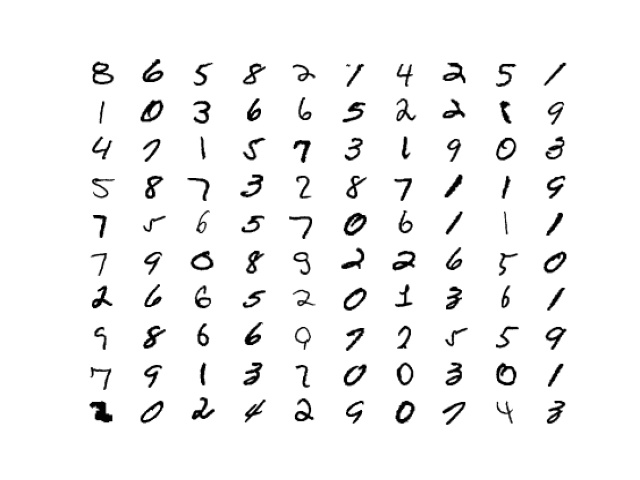 8 6 5 8 2 1 4 2 5 1
1 0 3 6 6 5 2 2 1 9
4 7 1 5 7 3 1 9 0 3
5 8 7 3 2 8 7 1 1 9
7 5 6 5 7 0 6 1 1 1
7 9 0 8 9 2 2 6 5 0
2 6 6 5 2 0 1 3 6 1
9 8 6 6 0 7 2 5 5 9
7 9 1 3 2 0 0 3 0 1
2 0 2 4 2 9 0 7 4 3